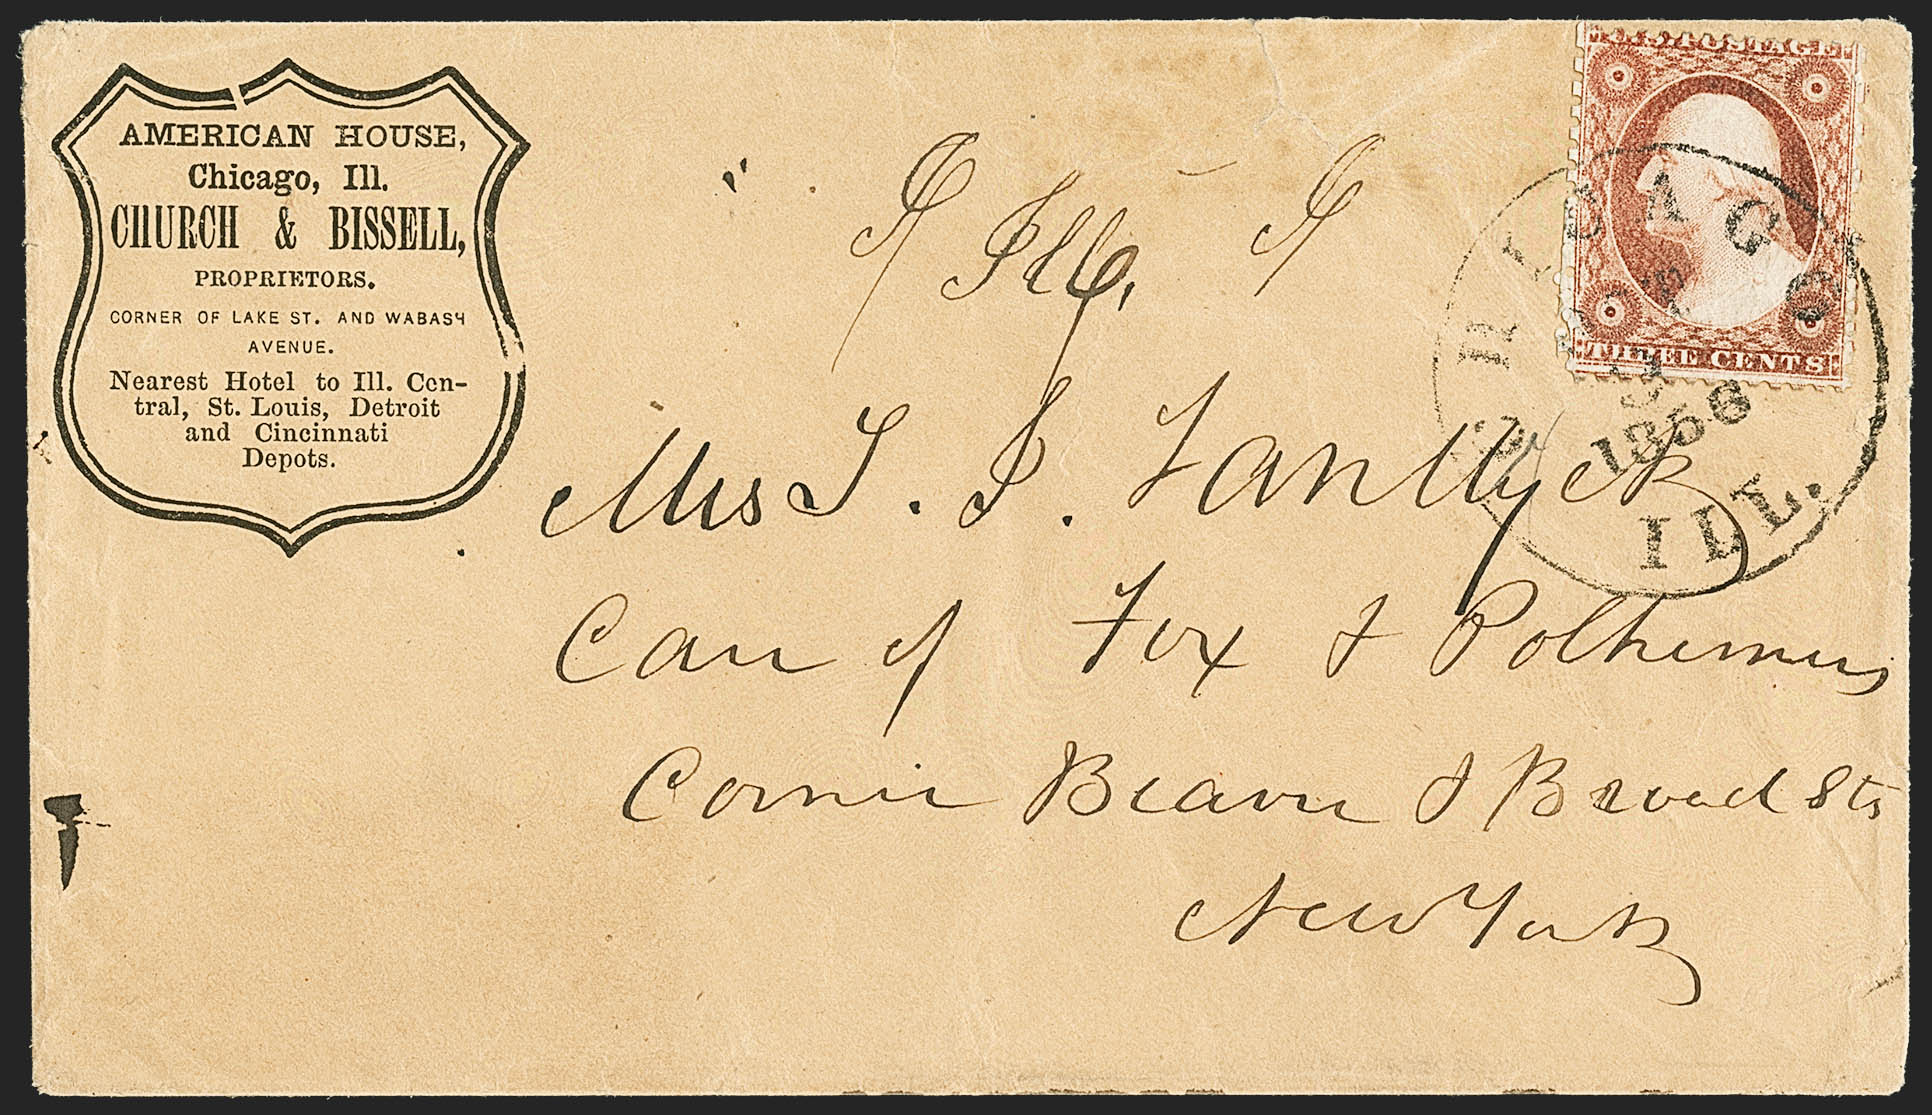 AMERICAN HOUSE,
Chicago, Ill.
CHURCH & BISSELL,
PROPRIETORS.
CORNER OF LAKE ST. AND WABASH
AVENUE.
Nearest Hotel to Ill. Cen-
tral, St. Louis, Detroit
and Cincinnati
Depots.
U.S. POSTAGE
THREE CENTS
CHICAGO
1858
ILL.
Mrs
Care of Fox & Polhemus
Corner Beaver & Broad Sts
New York